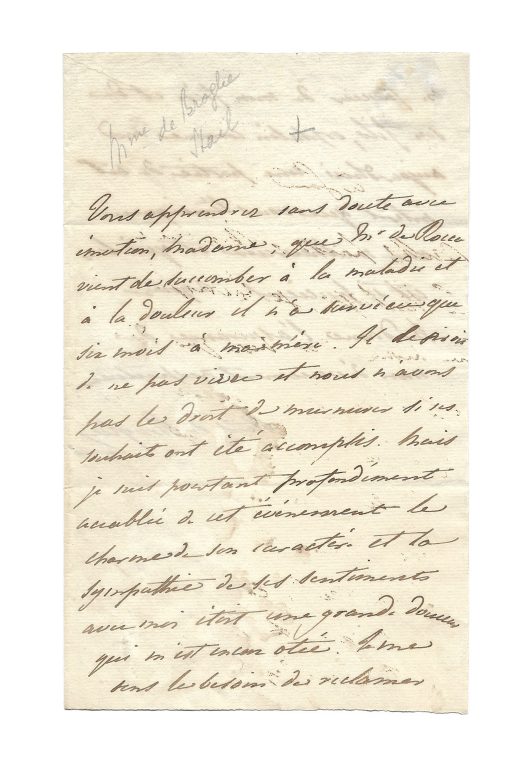 Mme de Broglie
Stael
+
Vous apprendrez sans doute avec
émotion, Madame, que Mr de Rocca
vient de succomber à la maladie et
à la douleur il n'a survécu que
six mois à ma mère. Il desirait
de ne pas vivre et nous n'avons
pas le droit de murmurer si ses
souhaits ont été accomplis. Mais
je suis pourtant profondément
accablée de cet événement le
charme de son caractère et la
sympathie de ses sentiments
avec moi étoit une grande douceur
qui m'est encor otée. Je me
sens le besoin de reclamer